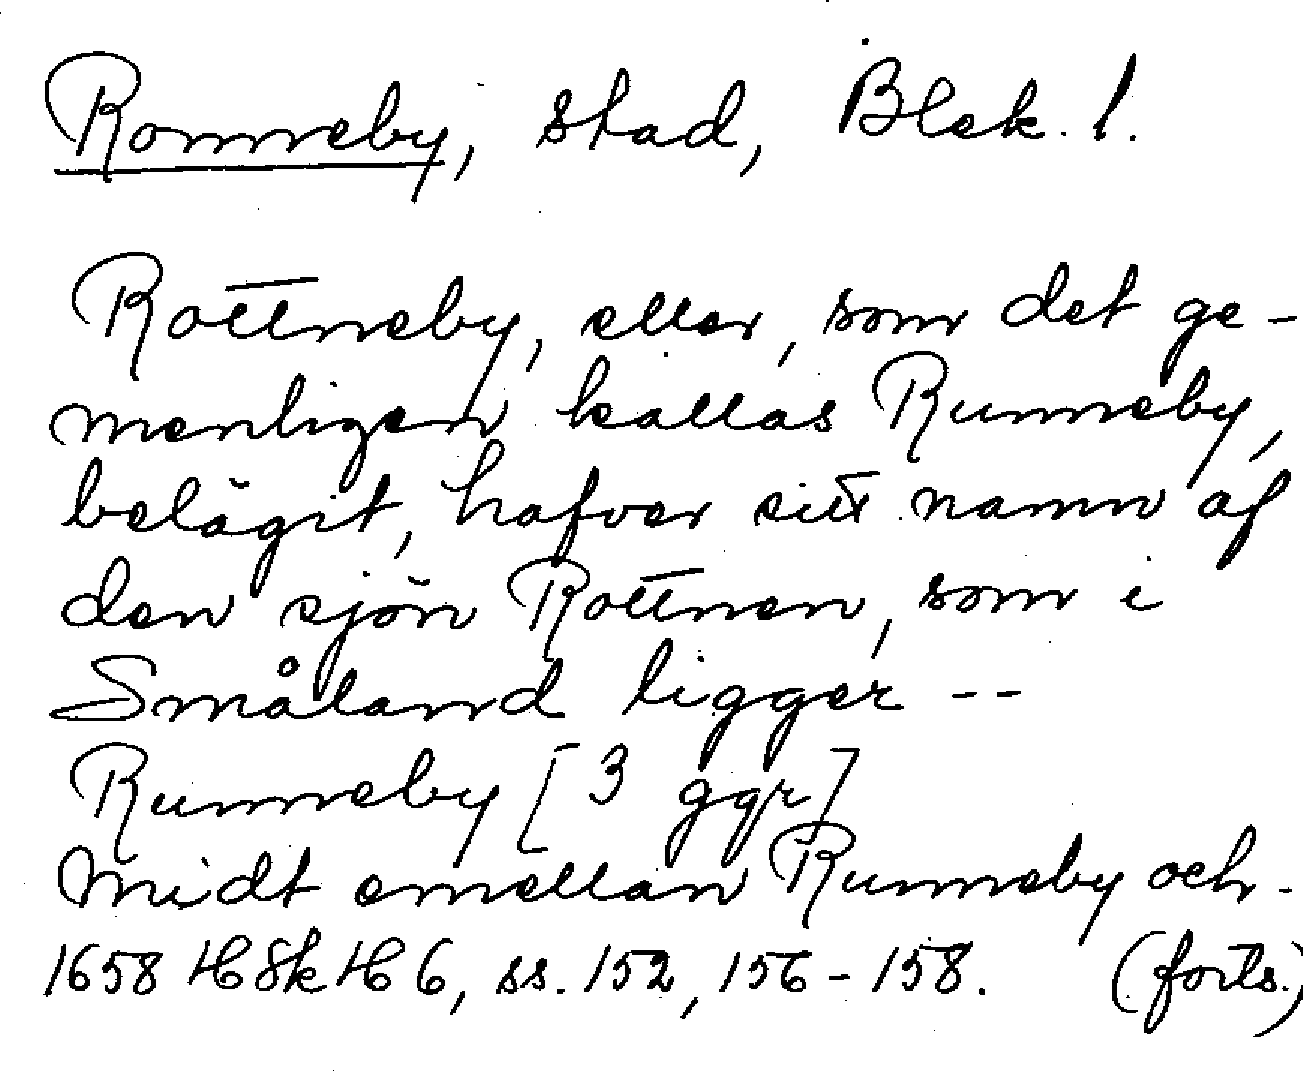 Ronneby, stad, Blek. l.
Rottneby, eller, som det ge-
menligen kallas Runneby,
belägit, hafver sitt namn af
den sjön Rottnen, som i
Småland ligger --
Runneby [3 ggr]
Midt emellan Runneby och-
1658 HSkH 6, ss. 152, 156-158. (forts.)